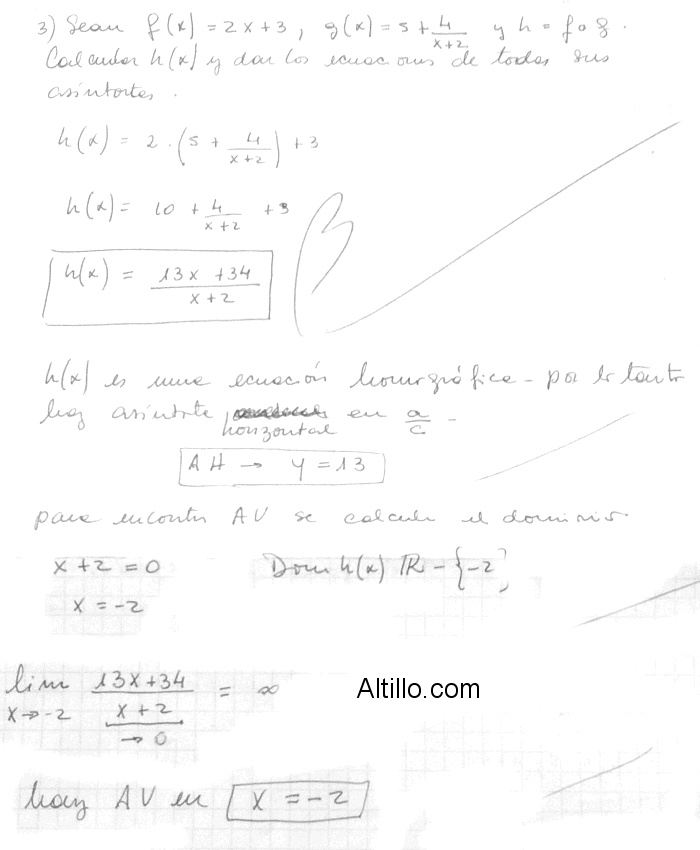 3) Sean f(x) = 2x+3, g(x) = 5 + 4/(x+2) y h = f∘g.
Calcular h(x) y dar las ecuaciones de todas sus
asíntotas.
h(x) = 2·(5 + 4/(x+2)) + 3
h(x) = 10 + 4/(x+2) + 3
h(x) = (13x + 34)/(x+2)
h(x) es una ecuación homográfica - por lo tanto
hay asíntota horizontal en a/c -
AH → y = 13
para encontrar AV se calcula el dominio
x + 2 = 0 Dom h(x) ℝ - {-2}
x = -2
lim x→-2 (13x+34)/(x+2) = ∞ Altillo.com
→ 0
hay AV en x = -2